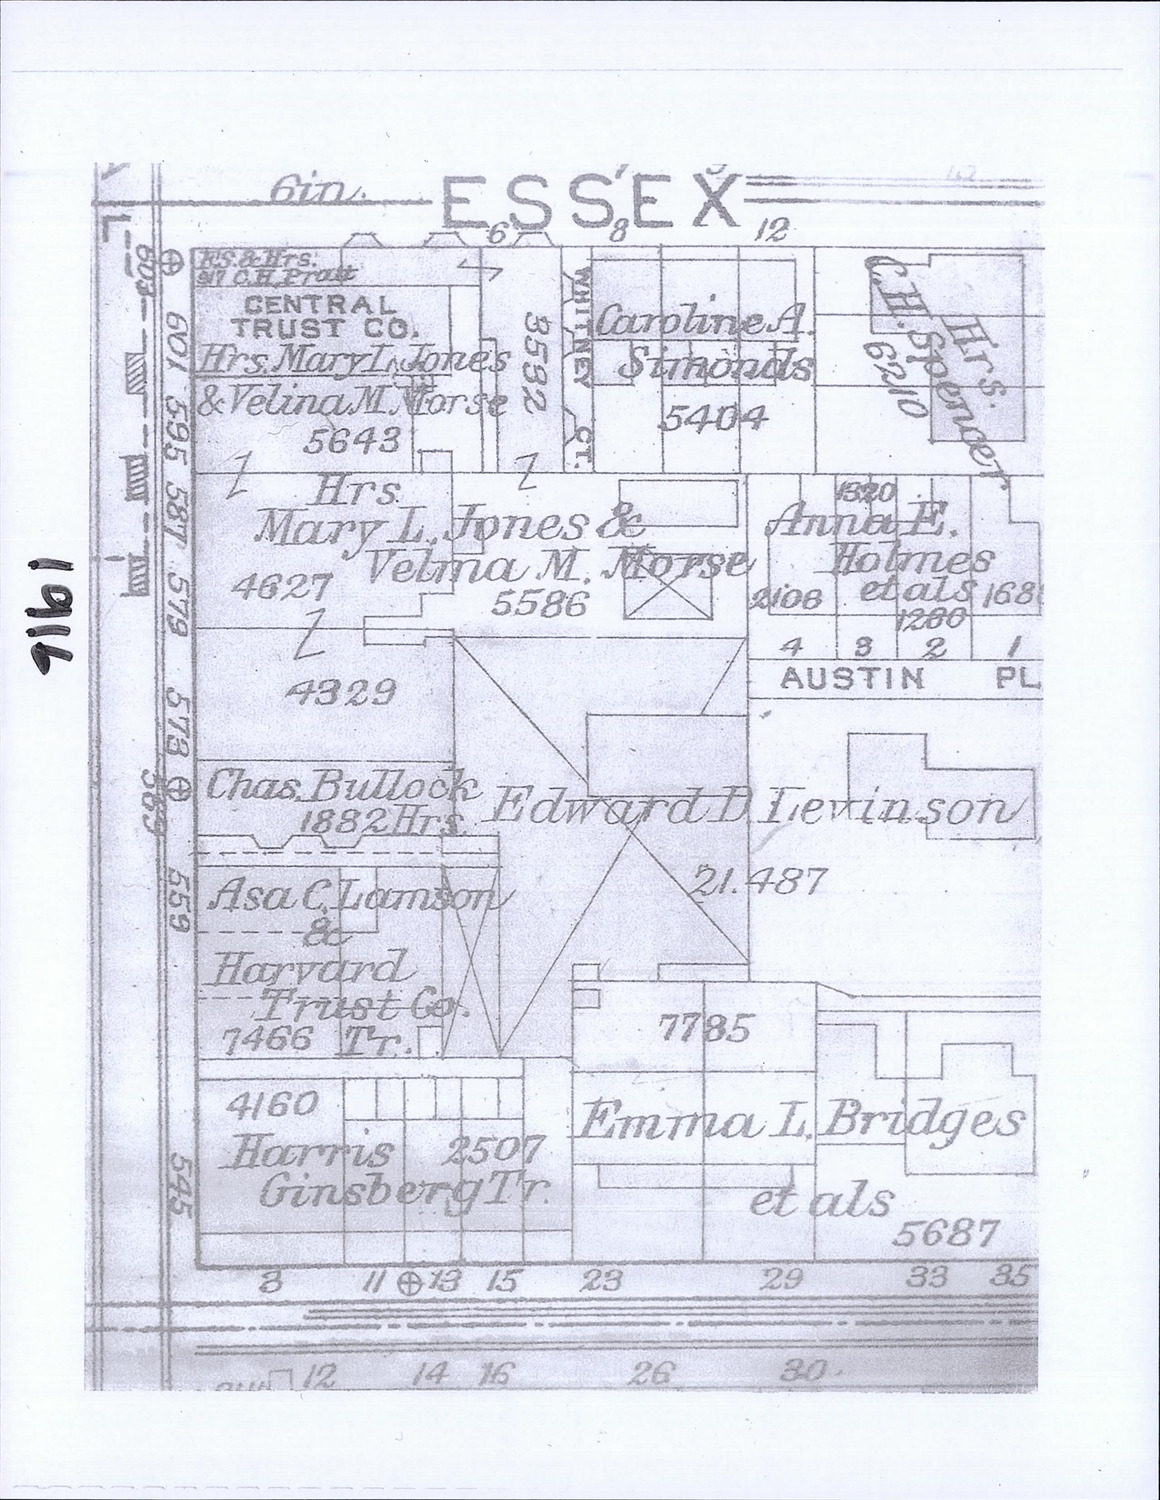 6in.
ESSEX
6
8
12
603
F.S. & Hrs.
917 C.H. Pratt
CENTRAL
TRUST CO.
Hrs. Mary L. Jones
& Velina M. Morse
5643
601
595
3592
WHITNEY CT.
Caroline A.
Simonds
5404
Hrs.
C.H. Spencer
6210
587
Hrs.
Mary L. Jones &
Velma M. Morse
4627
5586
579
1320
Anna E.
Holmes
et als
2106
1200
4
3
2
1
AUSTIN PL
4329
573
Chas. Bullock
1882 Hrs.
563
Edward D Levinson
21.487
559
Asa C. Lamson
&
Harvard
Trust Co.
7466 Tr.
7785
4160
Harris
2507
Ginsberg Tr.
545
Emma L. Bridges
et als
5687
3
11
13
15
23
29
33
35
12
14
16
26
30
1916